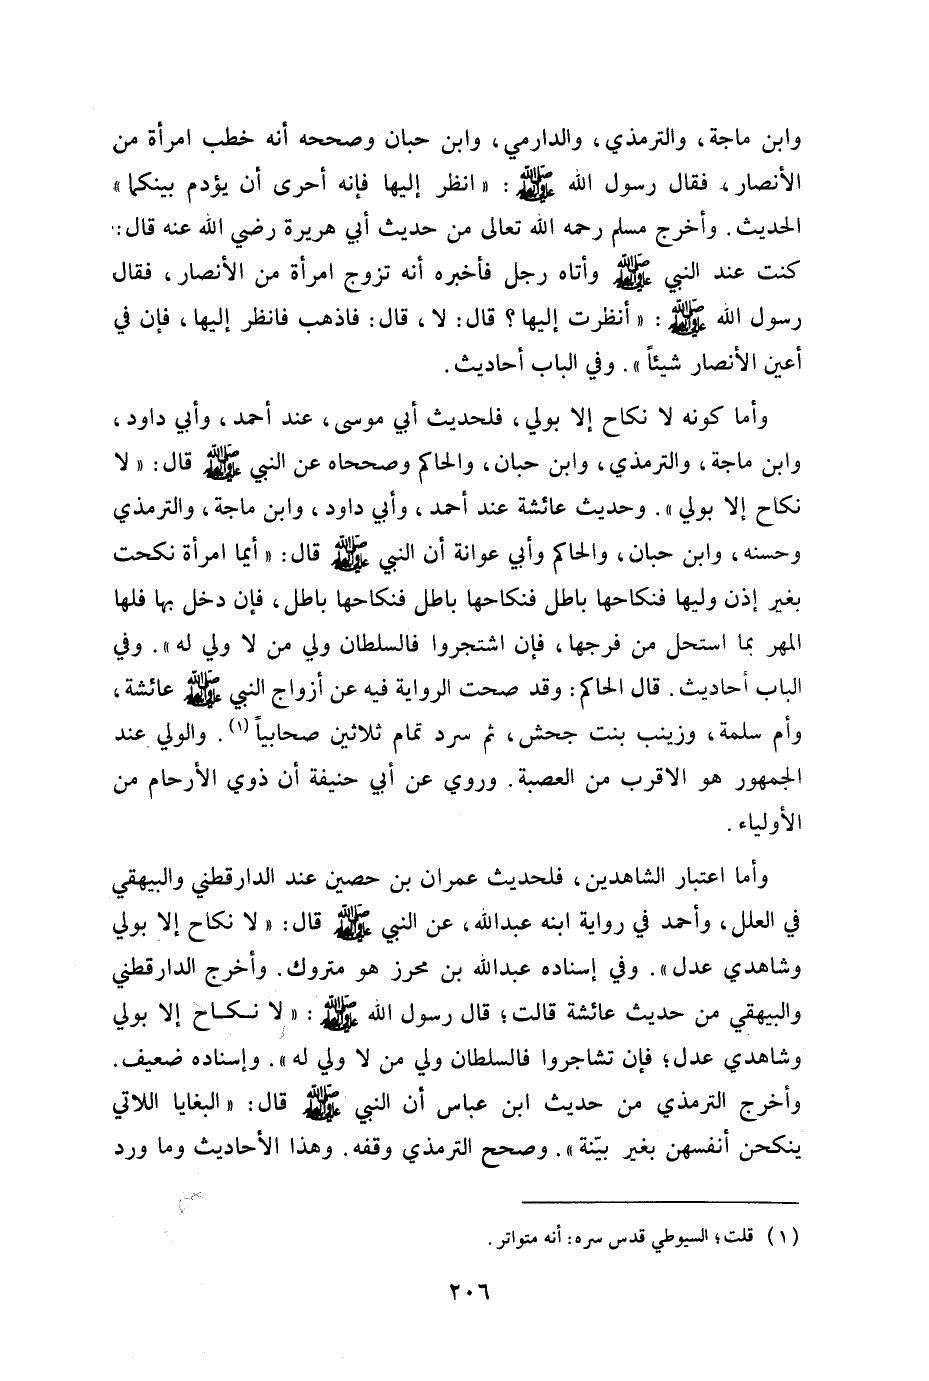 وابن ماجة، والترمذي، والدارمي، وابن حبان وصححه أنه خطب امرأة من
الأنصار، فقال رسول الله ﷺ : « انظر إليها فإنه أحرى أن يؤدم بينكما »
الحديث. وأخرج مسلم رحمه الله تعالى من حديث أبي هريرة رضي الله عنه قال:
كنت عند النبي ﷺ وأتاه رجل فأخبره أنه تزوج امرأة من الأنصار، فقال
رسول الله ﷺ : « أنظرت إليها؟ قال: لا، قال: فاذهب فانظر إليها، فإن في
أعين الأنصار شيئاً ». وفي الباب أحاديث.
وأما كونه لا نكاح إلا بولي، فلحديث أبي موسى، عند أحمد، وأبي داود،
وابن ماجة، والترمذي، وابن حبان، والحاكم وصححاه عن النبي ﷺ قال: « لا
نكاح إلا بولي ». وحديث عائشة عند أحمد، وأبي داود، وابن ماجة، والترمذي
وحسنه، وابن حبان، والحاكم وأبي عوانة أن النبي ﷺ قال: « أيما امرأة نكحت
بغير إذن وليها فنكاحها باطل فنكاحها باطل فنكاحها باطل، فإن دخل بها فلها
المهر بما استحل من فرجها، فإن اشتجروا فالسلطان ولي من لا ولي له ». وفي
الباب أحاديث. قال الحاكم: وقد صحت الرواية فيه عن أزواج النبي ﷺ عائشة،
وأم سلمة، وزينب بنت جحش، ثم سرد تمام ثلاثين صحابياً (١). والولي عند
الجمهور هو الاقرب من العصبة. وروي عن أبي حنيفة أن ذوي الأرحام من
الأولياء.
وأما اعتبار الشاهدين، فلحديث عمران بن حصين عند الدارقطني والبيهقي
في العلل، وأحمد في رواية ابنه عبدالله، عن النبي ﷺ قال: « لا نكاح إلا بولي
وشاهدي عدل ». وفي إسناده عبدالله بن محرز هو متروك. وأخرج الدارقطني
والبيهقي من حديث عائشة قالت؛ قال رسول الله ﷺ : « لا نكاح إلا بولي
وشاهدي عدل؛ فإن تشاجروا فالسلطان ولي من لا ولي له ». وإسناده ضعيف.
وأخرج الترمذي من حديث ابن عباس أن النبي ﷺ قال: « البغايا اللاتي
ينكحن أنفسهن بغير بيّنة ». وصحح الترمذي وقفه. وهذا الأحاديث وما ورد
(١) قلت؛ السيوطي قدس سره: أنه متواتر.
٢٠٦